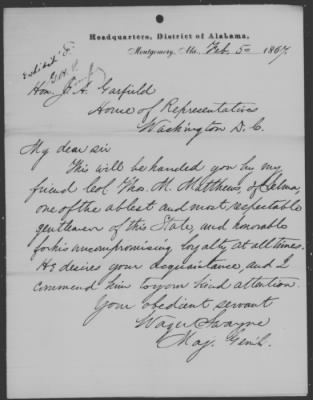 Headquarters, District of Alabama,
Montgomery, Ala., Feb. 5" 1867.
Exhibit
Hon. J. A. Garfield
House of Representatives
Washington D. C.
My dear sir
This will be handed you by my
friend Col. Thos. M. Matthews, of Selma,
one of the ablest and most respectable
gentlemen of this State, and honorable
for his uncompromising loyalty at all times.
He desires your acquaintance, and I
commend him to your kind attention.
Your obedient servant
Wager Swayne
Maj. Gen'l.